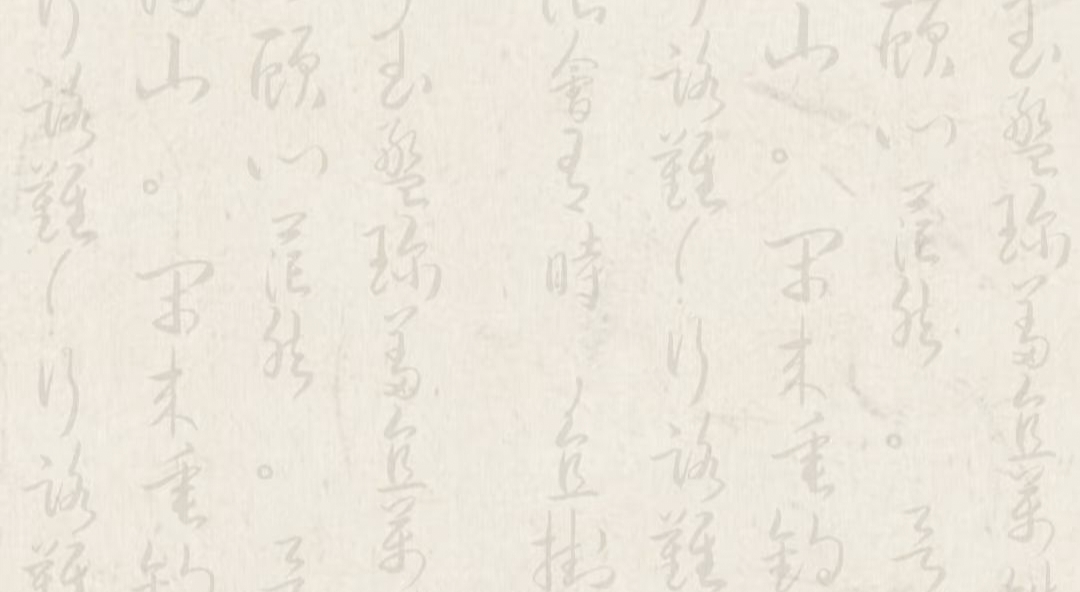 玉盤珍羞直萬
顧心茫然。
山。閒來垂釣
路難，行路難
會有時，直掛
玉盤珍羞直萬
顧心茫然。
山。閒來垂釣
路難，行路難